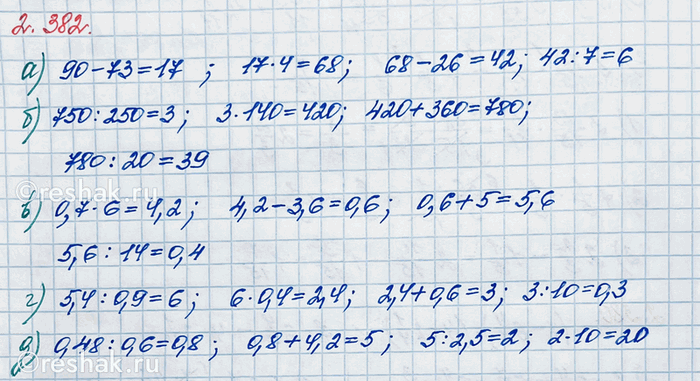 2.382.
а) 90-73=17 ; 17·4=68; 68-26=42; 42:7=6
б) 750:250=3; 3·140=420; 420+360=780;
780:20=39
©reshak.ru
в) 0,7·6=4,2; 4,2-3,6=0,6; 0,6+5=5,6
5,6:14=0,4
г) 5,4:0,9=6; 6·0,4=2,4; 2,4+0,6=3; 3:10=0,3
д) 0,48:0,6=0,8; 0,8+4,2=5; 5:2,5=2; 2·10=20